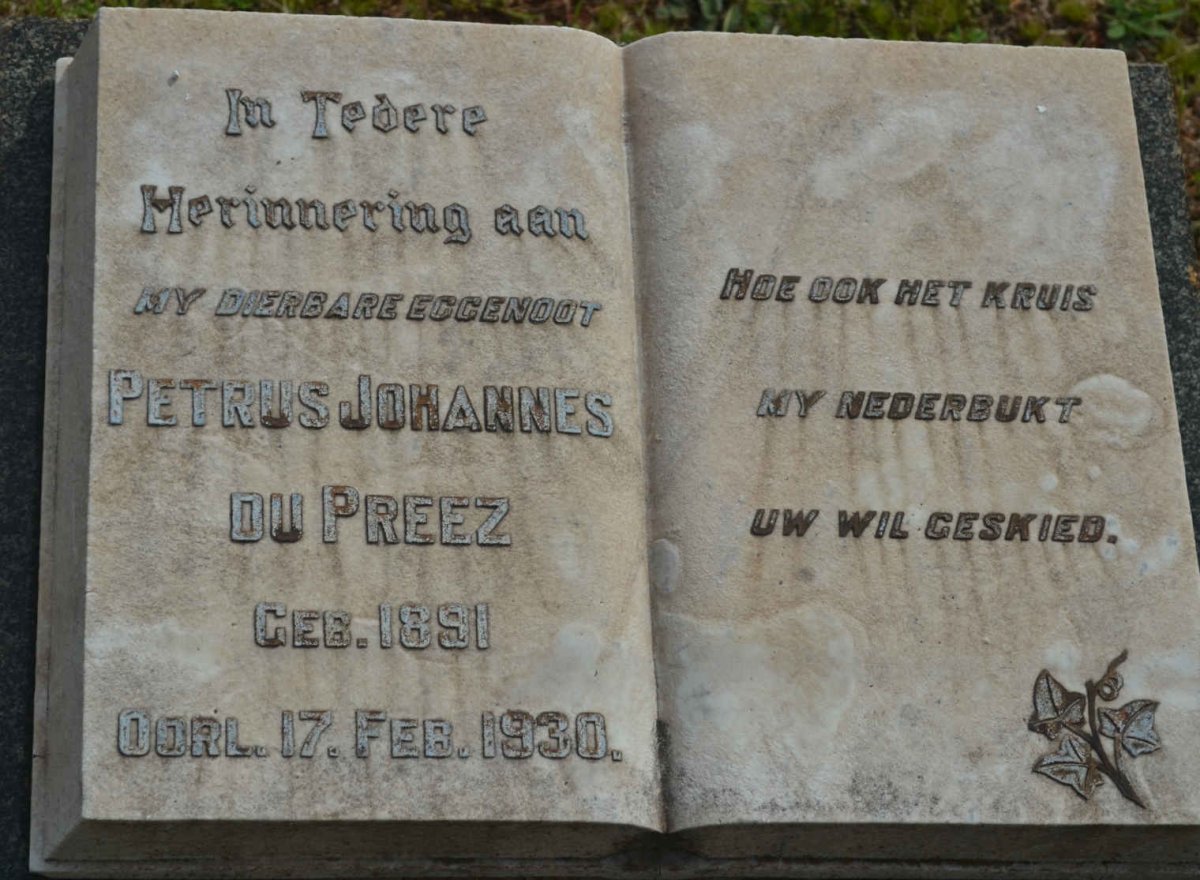 In Tedere
Herinnering aan
MY DIERBARE EGGENOOT
PETRUS JOHANNES
DU PREEZ
GEB. 1891
OORL. 17. FEB. 1930.
HOE OOK HET KRUIS
MY NEDERBUKT
UW WIL GESKIED.